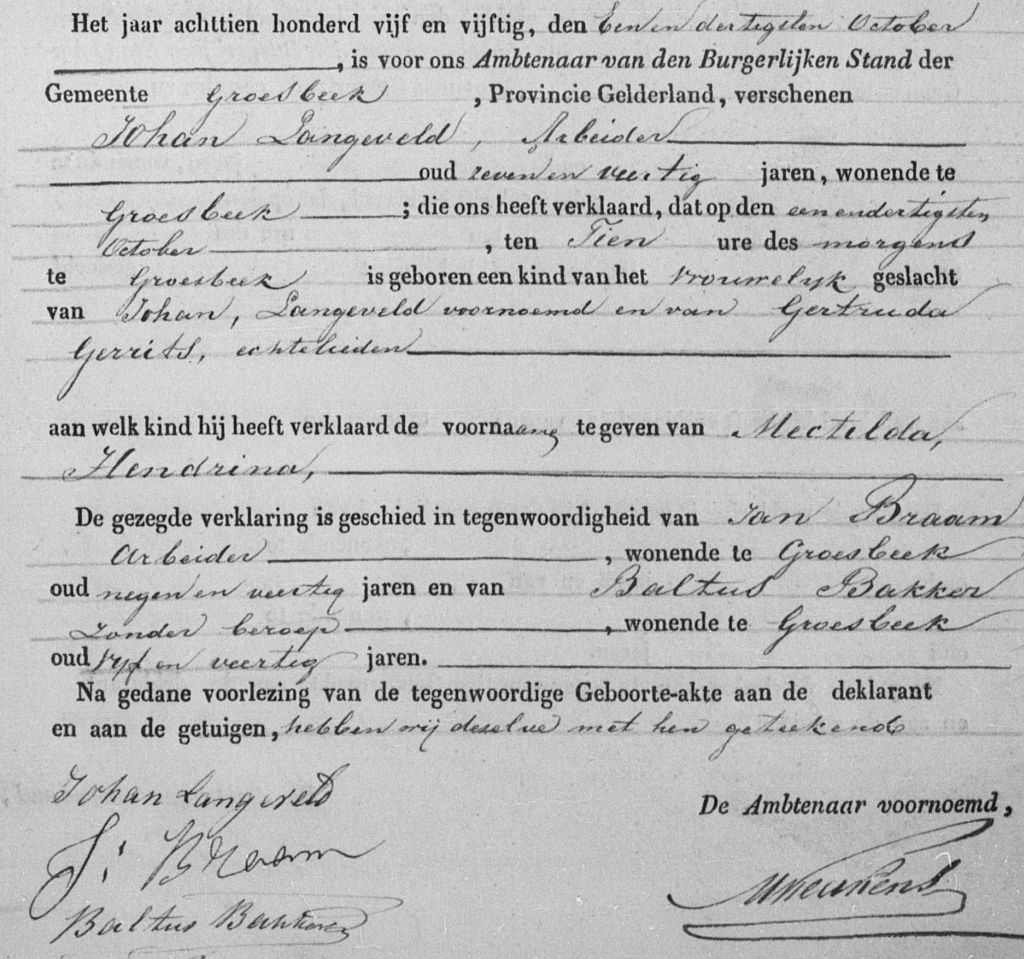 Het jaar achttien honderd vijf en vijftig, den Eenen dertigsten October
, is voor ons Ambtenaar van den Burgerlijken Stand der
Gemeente Groesbeek , Provincie Gelderland, verschenen
Johan Langeveld, Arbeider
oud zeven en veertig jaren, wonende te
Groesbeek ; die ons heeft verklaard, dat op den eenendertigsten
October , ten Tien ure des morgens
te Groesbeek is geboren een kind van het vrouwelyk geslacht
van Johan, Langeveld voornoemd en van Gertruda
Gerrits, echtelieden
aan welk kind hij heeft verklaard de voornaam te geven van Mectelda,
Hendrina,
De gezegde verklaring is geschied in tegenwoordigheid van Jan Braam
Arbeider , wonende te Groesbeek
oud negen en veertig jaren en van Baltus Bakker
Zonder beroep , wonende te Groesbeek
oud vyf en veertig jaren.
Na gedane voorlezing van de tegenwoordige Geboorte-akte aan de deklarant
en aan de getuigen, hebben wij deselve met hen geteekend
Johan Langeveld
De Ambtenaar voornoemd,
J: Braam
Baltus Bakker